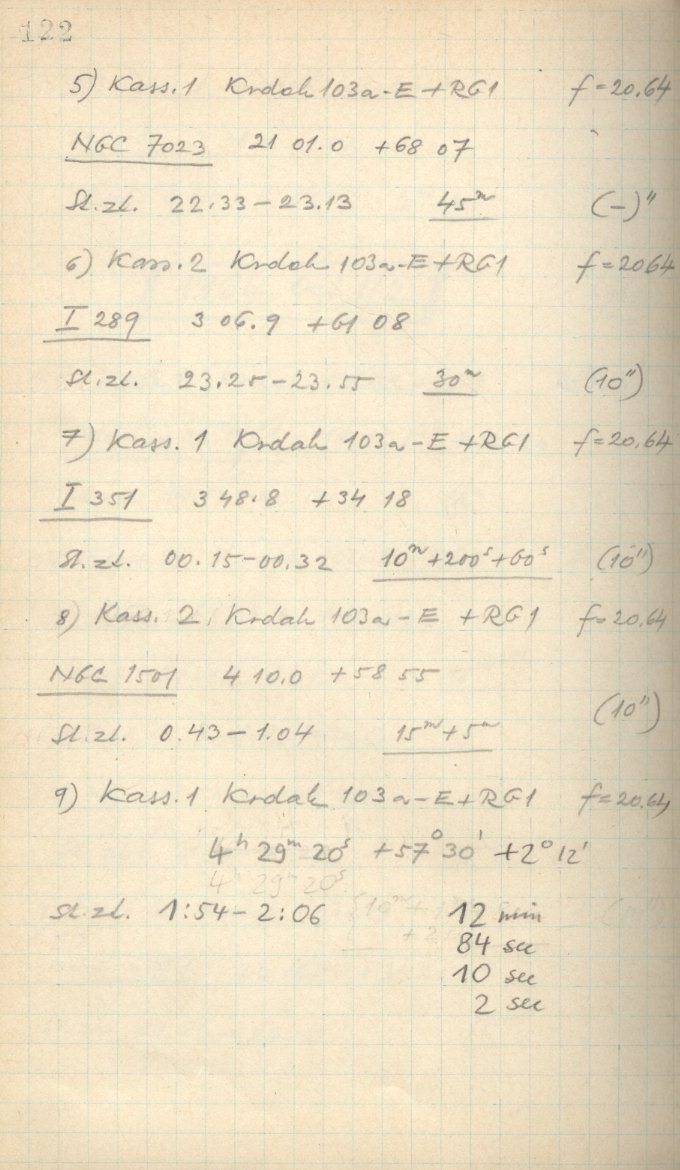 122
5) Kass. 1 Kodak 103a-E + RG1 f = 20.64
NGC 7023 21 01.0 +68 07
St. zt. 22.33 - 23.13 45m (-)"
6) Kass. 2 Kodak 103a-E + RG1 f = 20.64
I 289 3 06.9 +61 08
St. zt. 23.25 - 23.55 30m (10")
7) Kass. 1 Kodak 103a-E + RG1 f = 20.64
I 351 3 48.8 +34 18
St. zt. 00.15 - 00.32 10m + 200s + 60s (10")
8) Kass. 2 Kodak 103a-E + RG1 f = 20.64
NGC 1501 4 10.0 +58 55
(10")
St. zt. 0.43 - 1.04 15m + 5m
9) Kass. 1 Kodak 103a-E + RG1 f = 20.64
4h 29m 20s +57° 30' +2° 12'
4h 29m 20s
St. zt. 1:54 - 2:06 12 min
84 sec
10 sec
2 sec